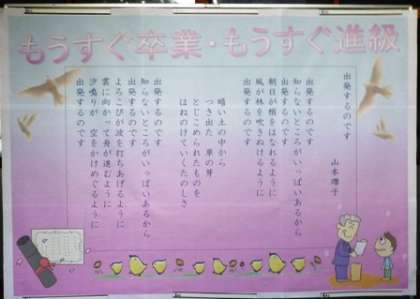 もうすぐ卒業・もうすぐ進級
出発するのです
山本瓔子
出発するのです
知らないところがいっぱいあるから
出発するのです
朝日が梢をはなれるように
風が林を吹きぬけるように
出発するのです
暗い土の中から
つき出た 草の芽
とじこめられたものを
はねのけていくたのしさ
出発するのです
知らないところがいっぱいあるから
出発するのです
よろこびが波を打ちあげるように
雲に向かって舟が進むように
汐鳴りが 空をかけめぐるように
出発するのです